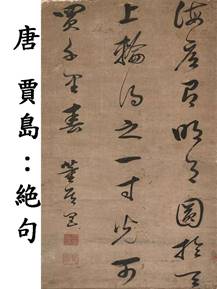 唐 賈島：絕句
海底有明月圓於天
上輪得之一寸光可
買千里春 董其昌